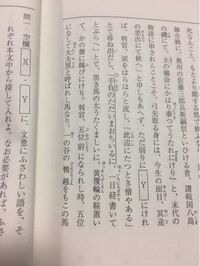 死なんこと、もとより期する処で候
御合戦に、奥州の佐藤三郎兵衛嗣信といひける者、讃岐国八島
の磯にて、主の御命にかはり奉つてうたれけり』と、末代の
物語に申されんことこそ、弓矢取る身には、今生の面目、冥途
の思出にて候へ」と申しもあへず、ただ弱りに Y にけれ
ば、判官、涙をはらはらと流し、「此辺にたつとき僧やある」
とて尋ね出だし、「手負のただいまおちいるに、一日経書いて
とぶらへ」とて、黒き馬のふとうたくましいに、黄覆輪の鞍置い
て、かの僧に賜びにけり。判官、五位尉になられし時、五位
になして大夫黒と呼ばれし馬なり。一の谷の鵯越をもこの馬
問、空欄 X 、 Y に、文意にふさわしい語を、そ
れぞれ本文中から探して入れよ。なお必要があれば、